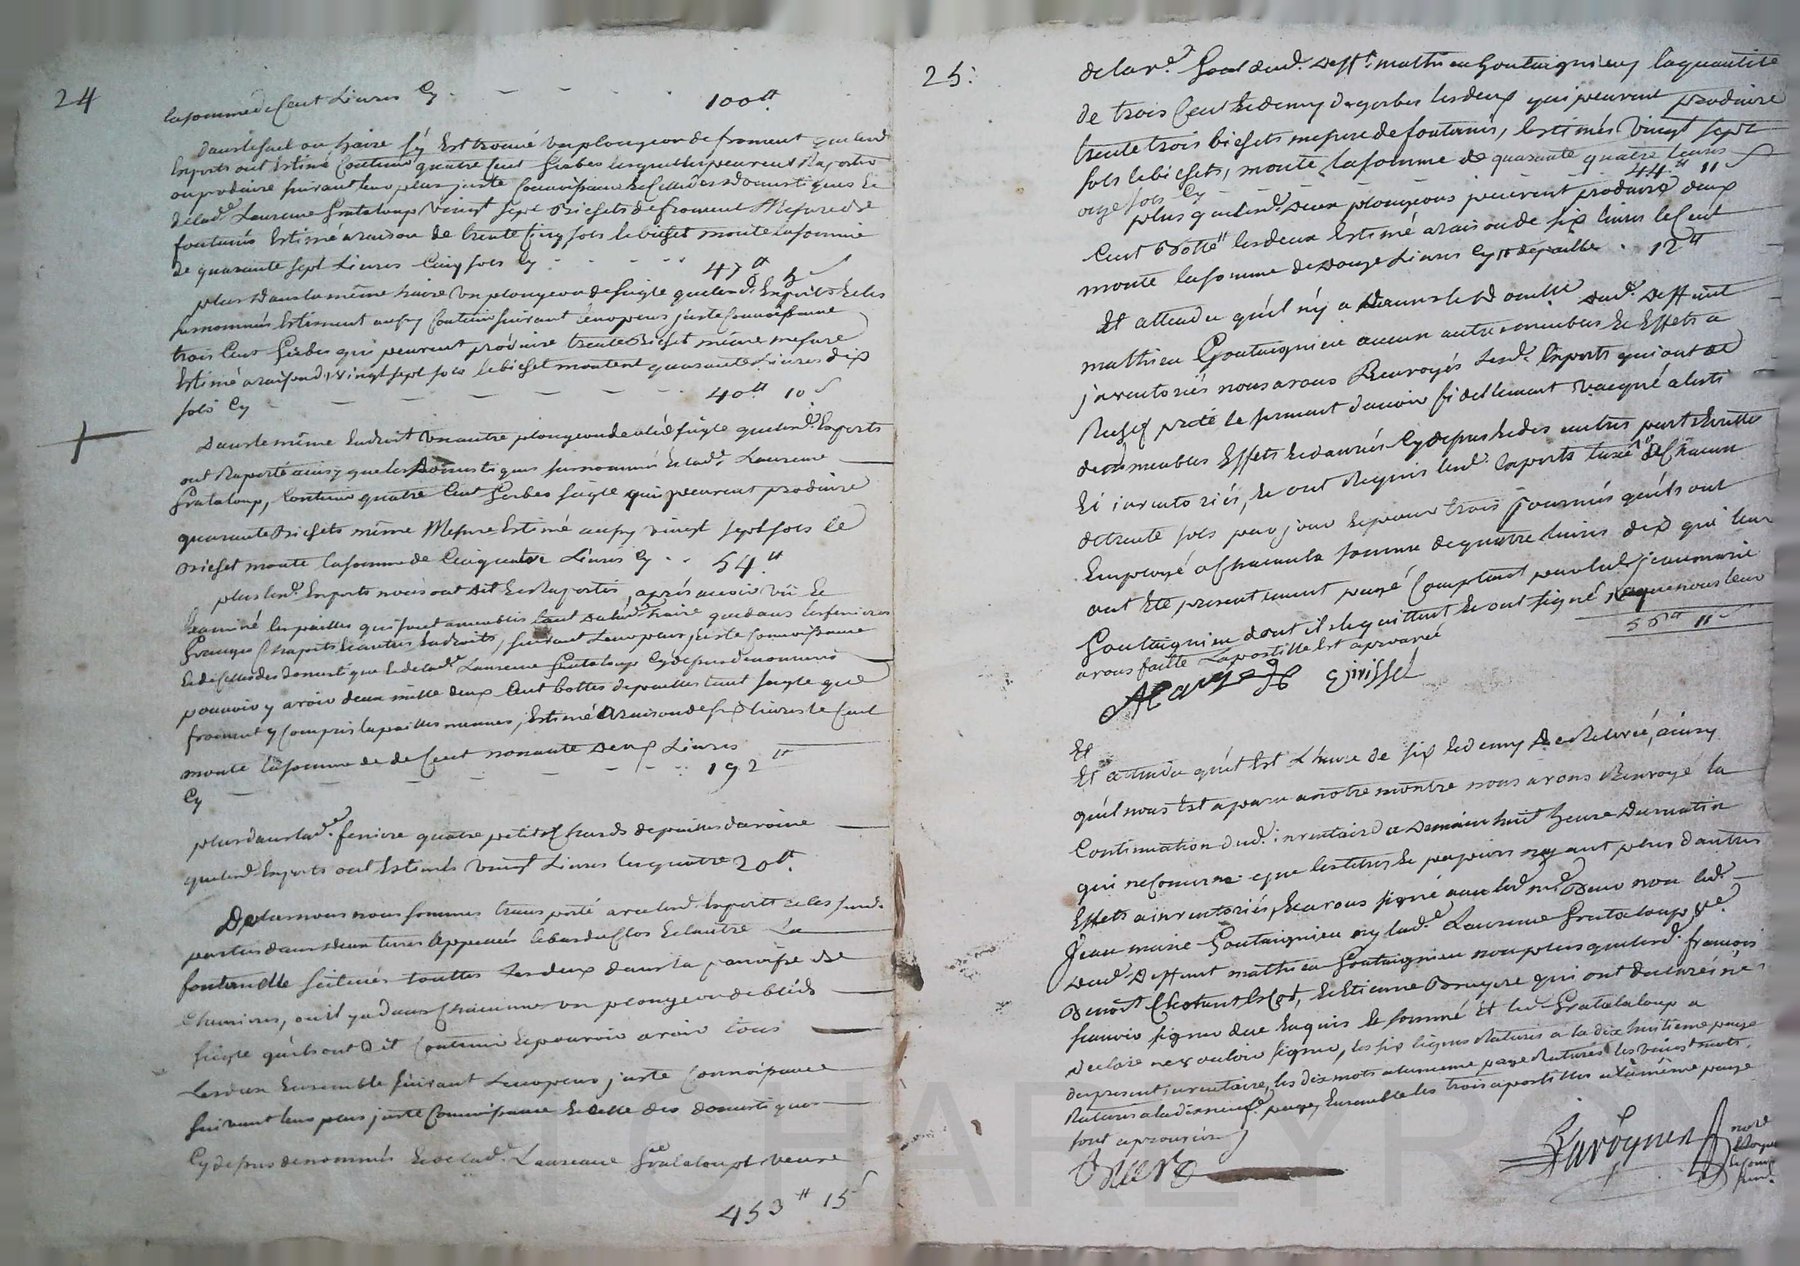 24
la somme de Cent Livres Cy - - - - 100tt
dans le suel ou haire s'y est trouvé un plongeon de froment que lesd.
Experts ont estimé contenir quatre cent gerbes lesquelles peuvent raporter
ou produire suivant leur plus juste connoissance et celle des domestiques et
de lad.e Laurence Grataloup vingt sept bichets de froment mesure de
fontanès estimé a raison de trente cinq sols le bichet monte la somme
de quarante sept Livres cinq sols Cy - - - - 47tt 5s
plus dans la même haire un plongeon de seigle que lesd. Experts et les
susnommés estiment aussy contenir suivant leurs plus juste connoissance
trois cent gerbes qui peuvent produire trente bichet même mesure
estimé a raison de vingt sept sols le bichet montent quarante Livres dix
sols Cy - - - - 40tt 10s
Dans le même endroit un autre plongeon de bled seigle que lesd. Experts
ont raporté ainsy que les domestiques susnommés et lad.e Laurence
Grataloup, contenir quatre cent gerbes seigle qui peuvent produire
quarante bichets même Mesure estimé aussy vingt sept sols le
bichet monte la somme de Cinquante Livres Cy - - 54tt
plus lesd. Experts nous ont dit et raportés, après avoir vû et
Examiné les pailles qui sont amoublés tant dans lad. haire que dans les fenieres
Granges Chapits et autres endroits, suivant leurs plus juste connoissance
et de celle des domestique et de lad.e Laurence Grataloup Cy dessus denommés
pouvoir y avoir deux mille deux cent bottes de pailles tant seigle que
froment y compris la paille menues, estimé a raison de six livres le cent
monte la somme de de Cent nonante deux Livres
Cy - - - - 192tt
plus dans lad.e feniere quatre petits chards de pailles d'avoine
que lesd. Experts ont estimés vingt Livres les quatre 20tt.
De la nous nous sommes transporté avec lesd. Experts et les susd.
parties dans deux terres appellés le bas du Clos et l'autre La
fontanelle scituées touttes les deux dans la paroisse de
Chevrieres, ou il y a dans chacune un plongeon de bleds
seigle qu'ils ont dit contenir et pouvoir avoir tous
les deux ensemble suivant leurs plus juste connoissance
suivant leur plus juste connoissance et celle des domestiques
Cy dessus denommés et de lad.e Laurence Grataloup veuve
453tt 15s
25
de la v.e dud. deff.t mathieu Goutaignieu, la quantité
de trois cent et demy de gerbes les deux qui peuvent produire
trente trois bichets mesure de fontanès, estimés vingt sept
sols le bichet, monte la somme de quarante quatre livres
onze sols Cy 44tt 11s
plus que lesd. deux plongeons peuvent produire deux
cent botte les deux estimé a raison de six livres le cent
monte la somme de douze Livres Cy de paille - 12tt
Et attendu qu'il n'y a dans led. domicille dud. deffunt
mathieu Goutaignieu aucun autre meubles et effets a
inventoriés nous avons renvoyés lesd. Experts qui ont de
rechef preté le serment d'avoir fidellement vacqué a l'esti
de meubles effets et danrées Cy dessus et des autres part
et inventoriés, et ont requis lesd. Experts taxe de Chacun
de trente sols par jour et pour trois journées qu'ils ont
Employé a chacun la somme de quatre livres dix qui leur
ont été presentement payé comptant par led. jean marie
Goutaignieu dont ils le quittent et ont signé requis nous leur
avons faitte l'apostille est aprouvé 56tt 11s
girisset
Et
Et attendu qu'il est l'heure de six et demy de relevée, ainsy
qu'il nous est aparu a notre montre nous avons renvoyé la
Continuation dud. inventaire a demain huit heure du matin
qui ne concerne que les titres et papiers ny ayant plus d'autres
Effets a inventoriés, et avons signé avec led. m.e non led.
Jean marie Goutaignieu ny lad.e Laurence Grataloup v.e
dud. Deffunt mathieu Goutaignieu non plus que lesd. francois
Benoit Chostant, et Etienne Bruyere qui ont declarés ne
scavoir signer de ce enquis et sommé et lad. Grataloup a
declaré ne vouloir signer, les six lignes raturés a la dix huitieme page
du present inventaire, les dix mots a la meme page raturés les vingt mots
raturés a la page, ensemble les trois apostilles a la même page
sont aprouvés